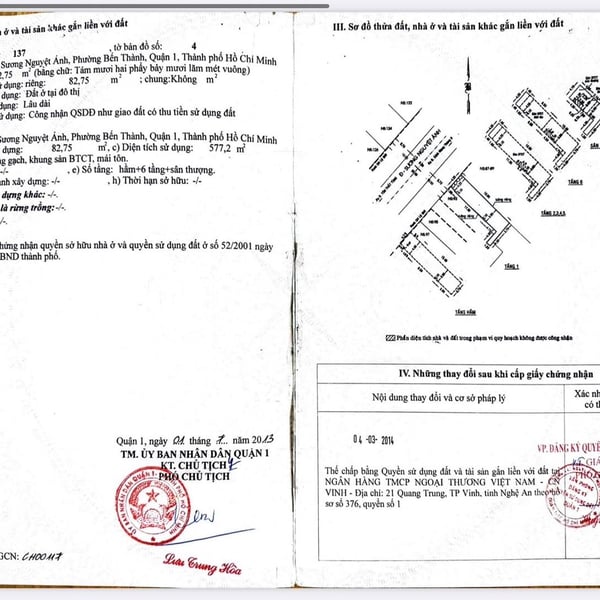 ở và tài sản khác gắn liền với đất
137 tờ bản đồ số: 4
Sương Nguyệt Ánh, Phường Bến Thành, Quận 1, Thành phố Hồ Chí Minh
2,75 m² (bằng chữ: Tám mươi hai phẩy bảy mươi lăm mét vuông)
ử dụng: riêng: 82,75 m² ; chung:Không m²
dụng: Đất ở tại đô thị
dụng: Lâu dài
dụng: Công nhận QSDĐ như giao đất có thu tiền sử dụng đất
Sương Nguyệt Ánh, Phường Bến Thành, Quận 1, Thành phố Hồ Chí Minh
dụng: 82,75 m², c) Diện tích sử dụng: 577,2 m²
g gạch, khung sàn BTCT, mái tôn.
-/- , e) Số tầng: hầm+6 tầng+sân thượng.
nh xây dựng: -/- , h) Thời hạn sở hữu: -/-
dựng khác: -/-
là rừng trồng: -/-.
/-.
hứng nhận quyền sở hữu nhà ở và quyền sử dụng đất ở số 52/2001 ngày
BND thành phố.
Quận 1, ngày 01 tháng 7 năm 2013
TM. ỦY BAN NHÂN DÂN QUẬN 1
KT. CHỦ TỊCH
PHÓ CHỦ TỊCH
Lưu Trung Hòa
GCN: CH00117
III. Sơ đồ thửa đất, nhà ở và tài sản khác gắn liền với đất
Đ - SƯƠNG NGUYỆT ÁNH
TẦNG 6
TẦNG 2,3,4,5
TẦNG 1
TẦNG HẦM
Phần diện tích nhà và đất trong phạm vi quy hoạch không được công nhận
IV. Những thay đổi sau khi cấp giấy chứng nhận
Nội dung thay đổi và cơ sở pháp lý
Xác nh
có th
04 -03- 2014
VP. ĐĂNG KÝ QUYỀ
Thế chấp bằng Quyền sử dụng đất và tài sản gắn liền với đất tại
NGÂN HÀNG TMCP NGOẠI THƯƠNG VIỆT NAM -
VINH - Địa chỉ: 21 Quang Trung, TP Vinh, tỉnh Nghệ An theo
sơ số 376, quyển số 1